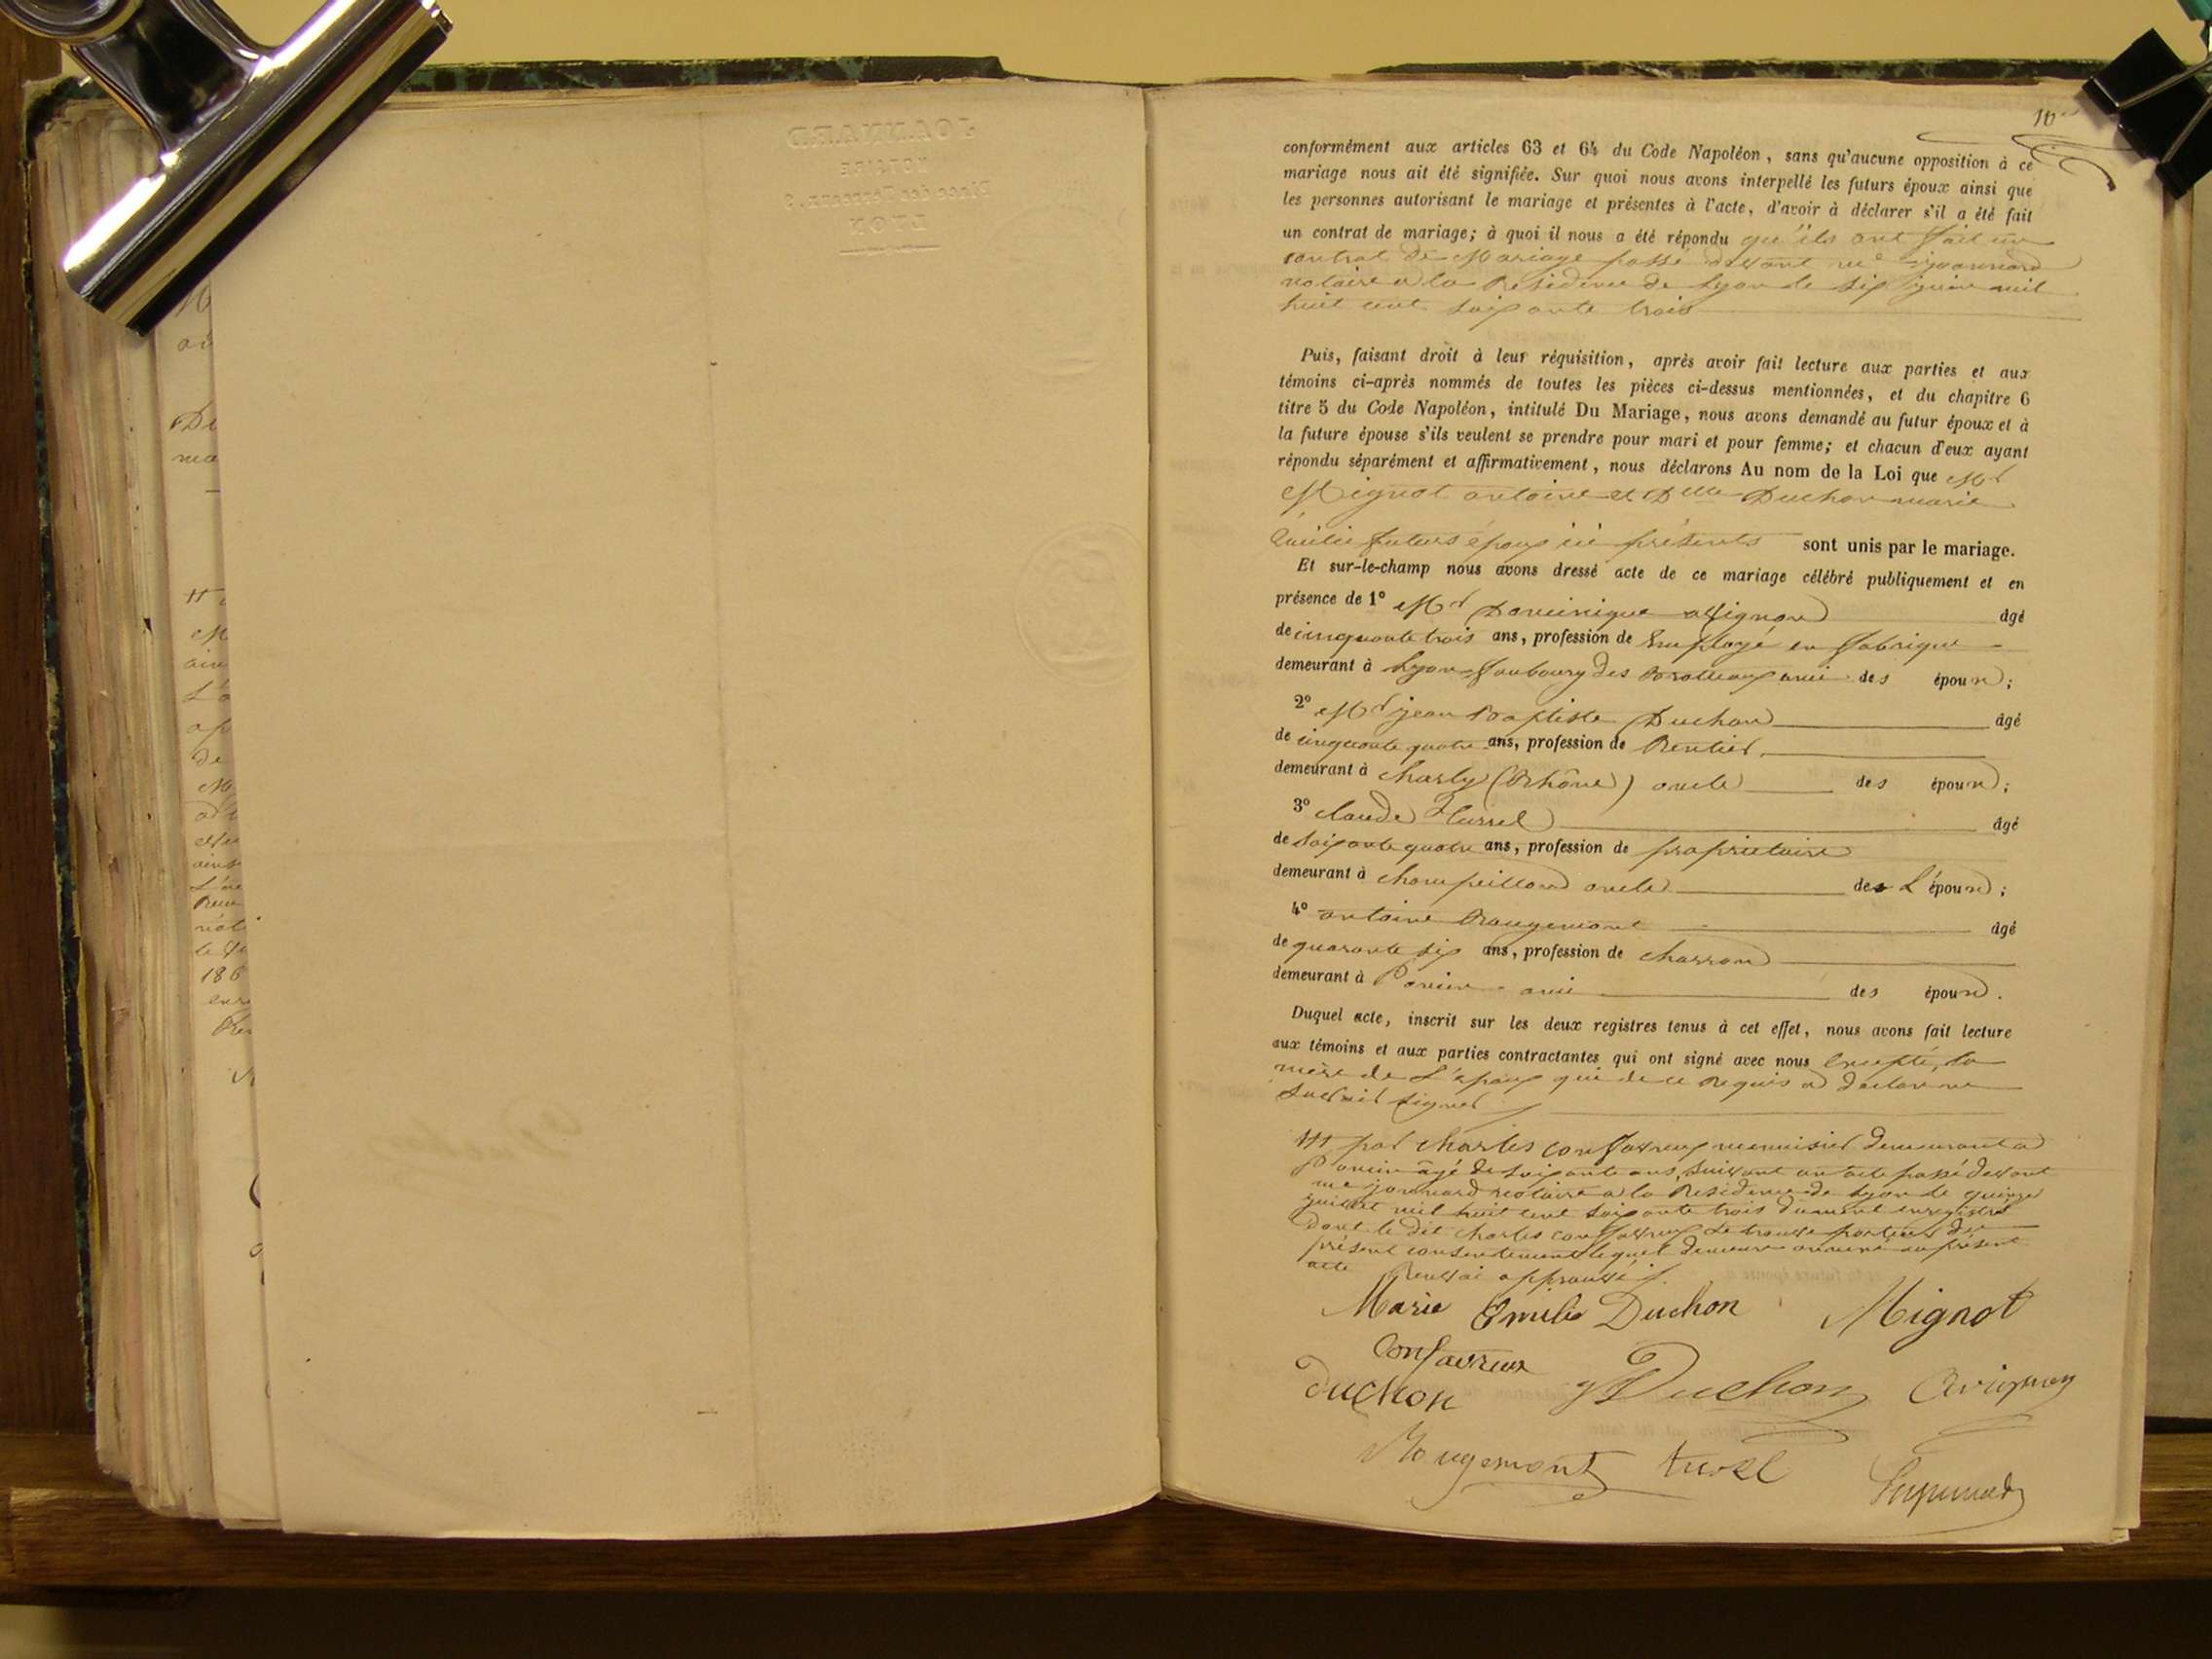 JOANNARD
NOTAIRE
Place des Terreaux, 9
LYON
De
186
10
conformément aux articles 63 et 64 du Code Napoléon, sans qu'aucune opposition à ce
mariage nous ait été signifiée. Sur quoi nous avons interpellé les futurs époux ainsi que
les personnes autorisant le mariage et présentes à l'acte, d'avoir à déclarer s'il a été fait
un contrat de mariage; à quoi il nous a été répondu qu'ils ont fait un
contrat de Mariage passé devant me joannard
notaire a la Residence de Lyon le six juin mil
huit cent soixante trois
Puis, faisant droit à leur réquisition, après avoir fait lecture aux parties et aux
témoins ci-après nommés de toutes les pièces ci-dessus mentionnées, et du chapitre 6
titre 5 du Code Napoléon, intitulé Du Mariage, nous avons demandé au futur époux et à
la future épouse s'ils veulent se prendre pour mari et pour femme; et chacun d'eux ayant
répondu séparément et affirmativement, nous déclarons Au nom de la Loi que Mr
Mignot antoine et Dlle Duchon marie
Émilie futurs époux ici présents sont unis par le mariage.
Et sur-le-champ nous avons dressé acte de ce mariage célébré publiquement et en
présence de 1° Mr Dominique avignon âgé
de cinquante trois ans, profession de Employé en fabrique
demeurant à Lyon faubourg des Brotteaux ami des époux;
2° Mr jean Baptiste Duchon âgé
de cinquante quatre ans, profession de Rentier
demeurant à Charly (Rhône) oncle des époux;
3° claude Turrel âgé
de soixante quatre ans, profession de propriétaire
demeurant à Champeillon oncle de L'époux;
4° antoine Rougemont âgé
de quarante six ans, profession de charron
demeurant à Poncin ami des époux.
Duquel acte, inscrit sur les deux registres tenus à cet effet, nous avons fait lecture
aux témoins et aux parties contractantes qui ont signé avec nous Excepté, la
mère de L'époux qui de ce requis a déclaré ne
savoir signer
par Charles confavreux menuisier demeurant a
Poncin âgé de soixante ans, suivant un acte passé devant
me joannard notaire a la Residence de Lyon le quinze
juillet mil huit cent soixante trois dument enregistré
dont le dit Charles confavreux se trouve porteur du
présent consentement lequel demeure annexé au présent
acte Renvoi approuvé
Marie Emilie Duchon Mignot
Confavreux
Duchon JB Duchon Avignon
Rougemont turel